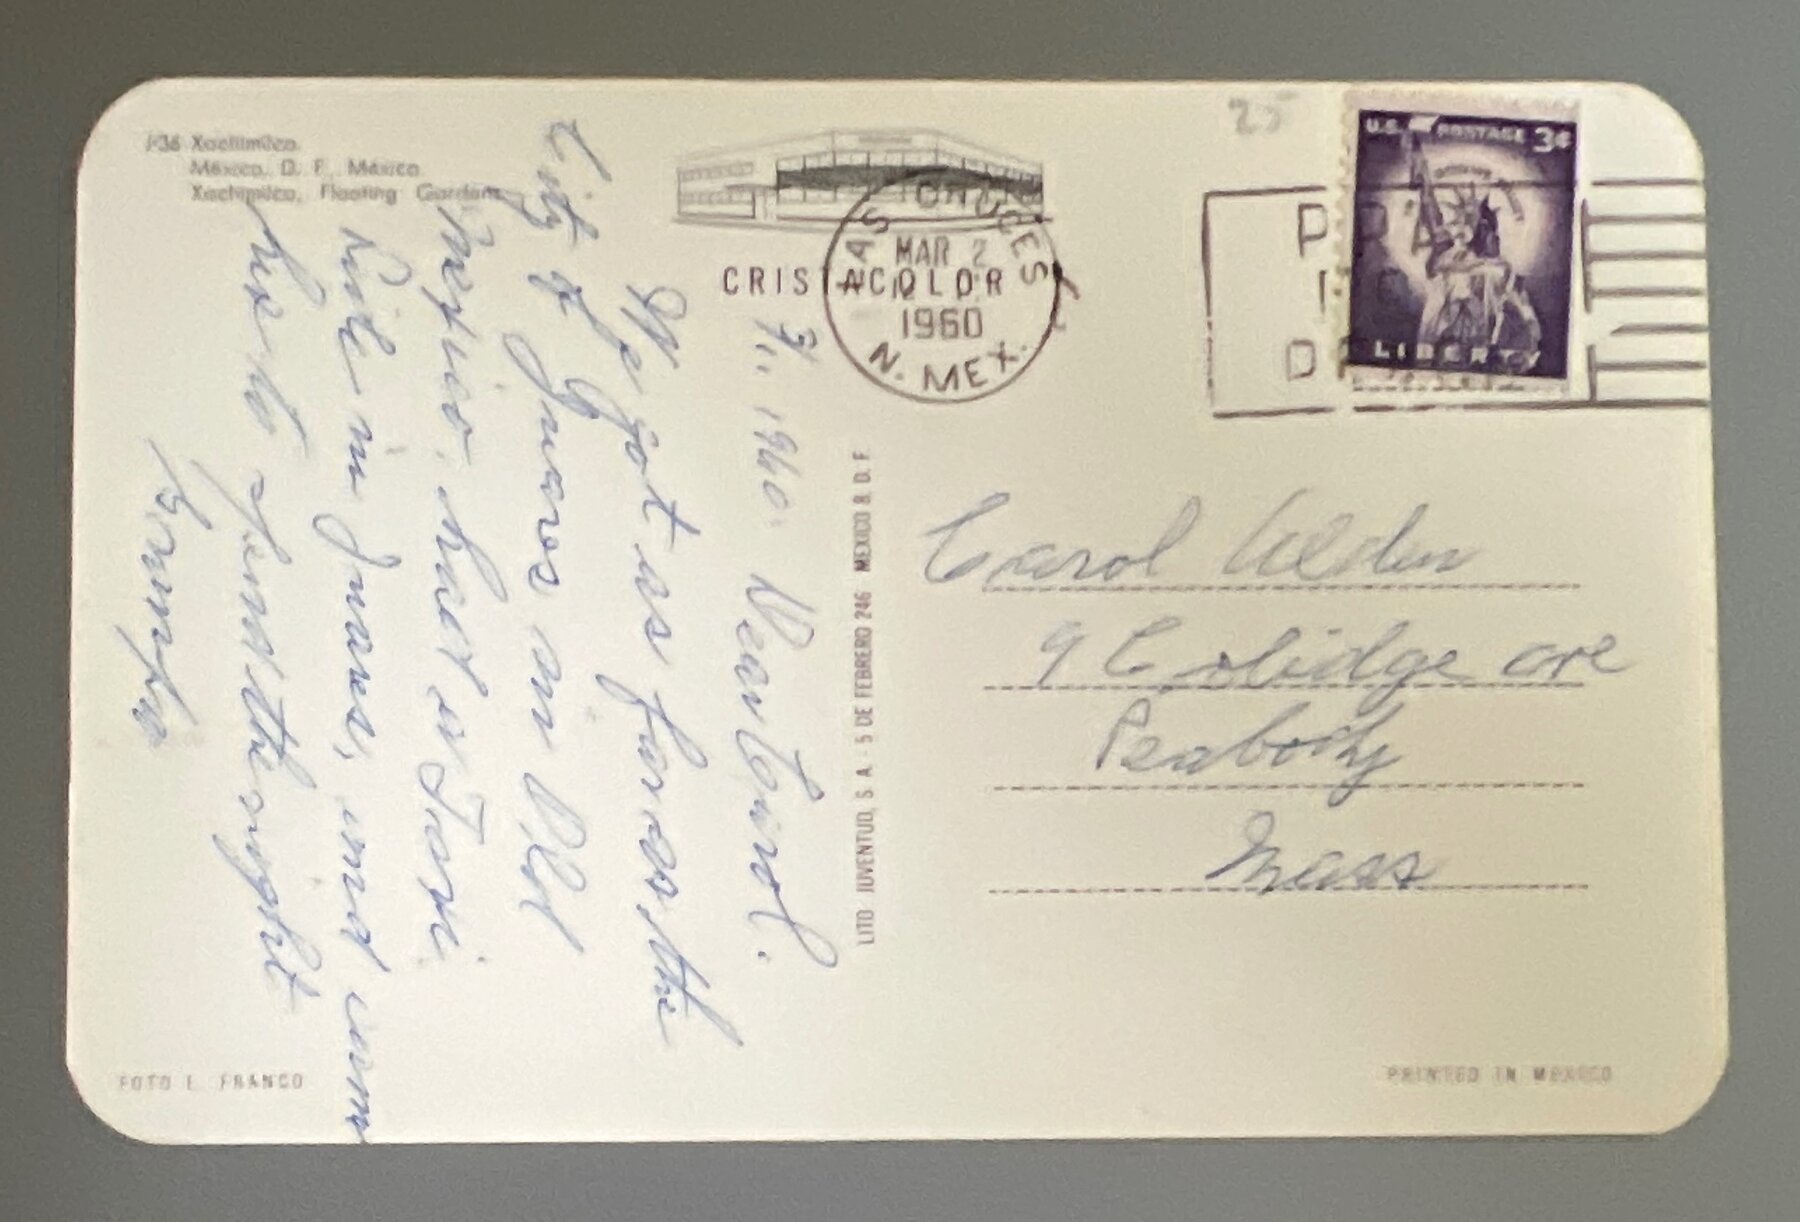 P36 Xochimilco.
México, D. F., México
Xochimilco, Floating Gardens
CRISTACOLOR
LAS CRUCES
MAR 2
1960
N. MEX.
25
U.S. POSTAGE 3¢
LIBERTY
1960. Dear Carol.
We got as far as the
City of Juares in Old
Mexico. had a Taxi
Ride in Juares, and came
here to spend the night
Grampa
LITO JUVENTUD, S. A. - 5 DE FEBRERO 246 MEXICO 8, D. F.
Carol Alden
9 Coolidge ave
Peabody
Mass
FOTO E. FRANCO
PRINTED IN MEXICO